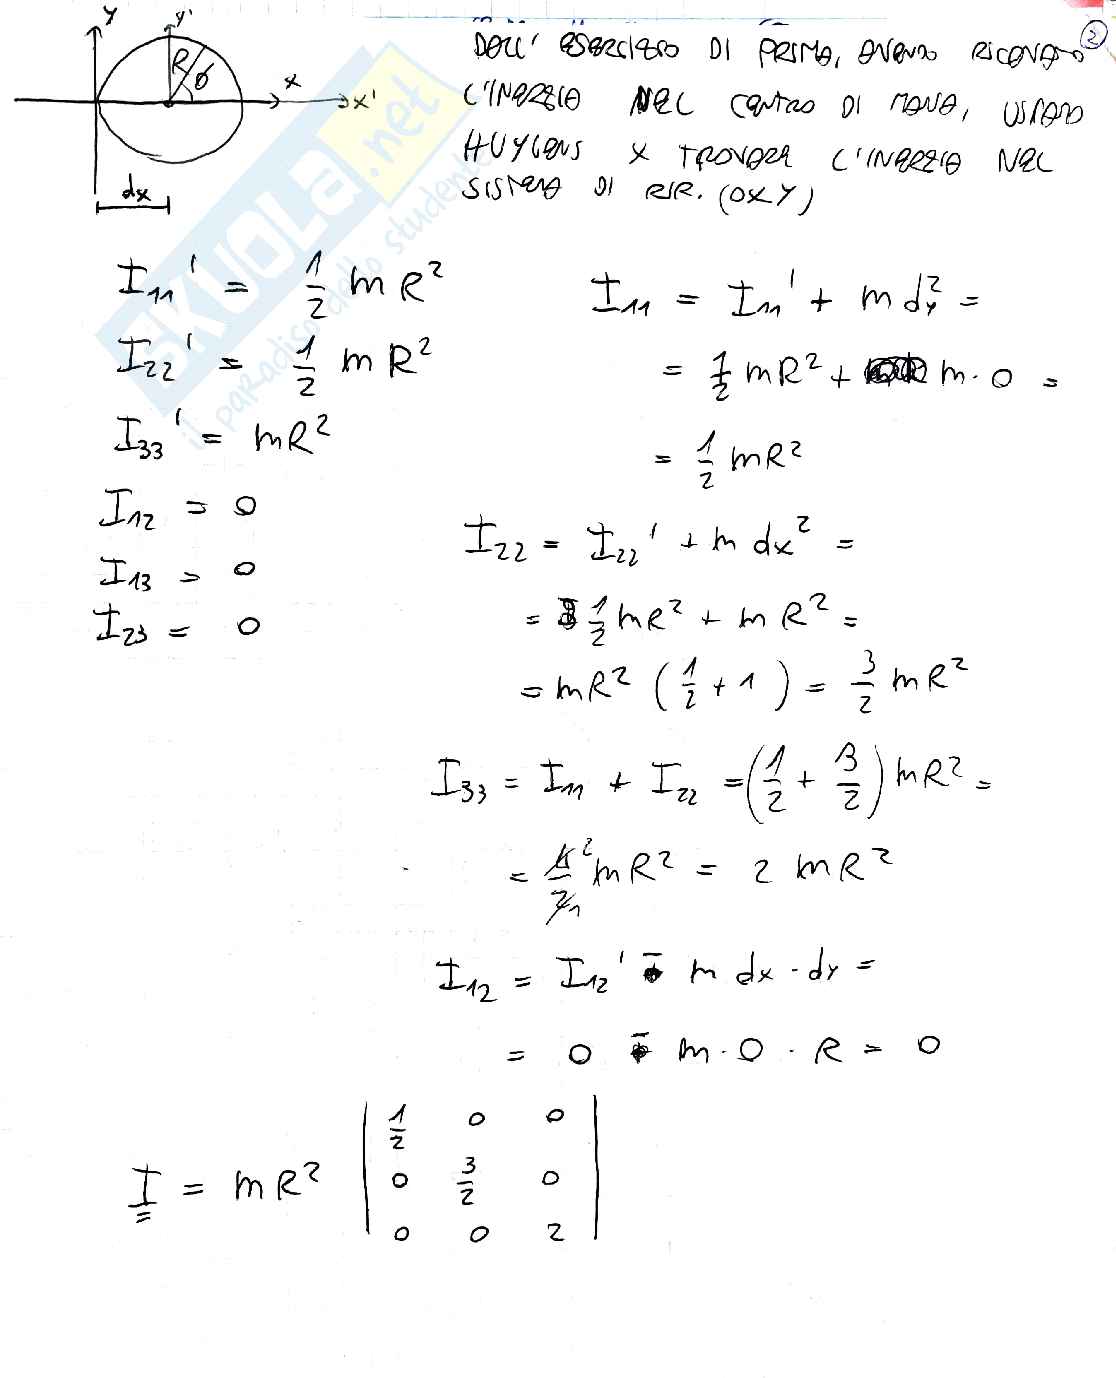 2
DALL' ESERCIZIO DI PRIMA, AVENDO RICAVATO
L'INERZIA NEL CENTRO DI MASSA, USIAMO
HUYGENS X TROVARE L'INERZIA NEL
SISTEMA DI RIF. (OXY)
y y'
R θ
x x'
dx
SKUOLA.net
il paradiso dello studente
I₁₁' = 1/2 mR²
I₂₂' = 1/2 mR²
I₃₃' = mR²
I₁₂ = 0
I₁₃ = 0
I₂₃ = 0
I₁₁ = I₁₁' + m dy² =
= 1/2 mR² + m · 0 =
= 1/2 mR²
I₂₂ = I₂₂' + m dx² =
= 1/2 mR² + mR² =
= mR² (1/2 + 1) = 3/2 mR²
I₃₃ = I₁₁ + I₂₂ = (1/2 + 3/2) mR² =
= 4/2 mR² = 2 mR²
I₁₂ = I₁₂' - m dx · dy =
= 0 - m · 0 · R = 0
I = mR² | 1/2 0 0 |
| 0 3/2 0 |
| 0 0 2 |